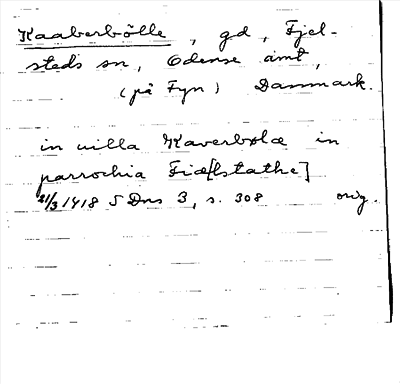 Kaaberbölle, gd, Fjel-
steds sn, Odense amt,
(på Fyn) Danmark.
in uilla Kaverbølæ in
parrochia Fiæ[lstathe]
21/3 1418 S Dns 3, s. 308 orig.